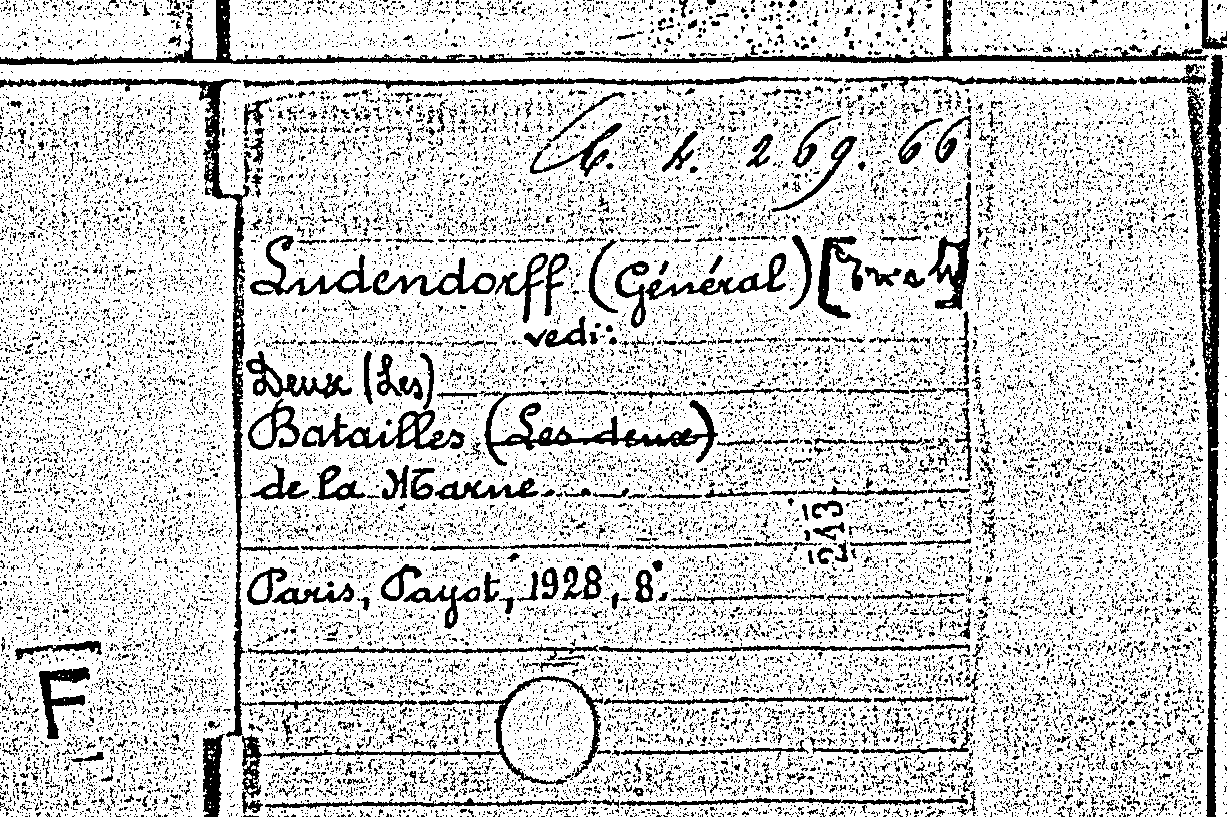 6. 4. 269. 66
Ludendorff (Général) [Erich]
vedi:
Deux (Les)
Batailles (Les deux)
de la Marne . . . .
213
Paris, Payot, 1928, 8°.
F